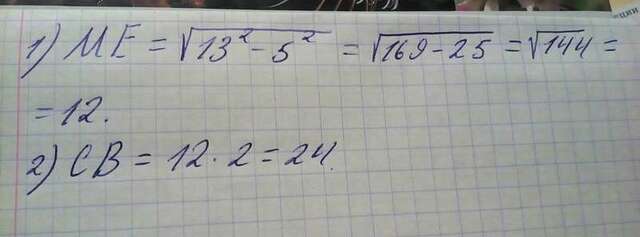 1) ME = √13² - 5² = √169 - 25 = √144 =
= 12.
2) CB = 12 · 2 = 24.